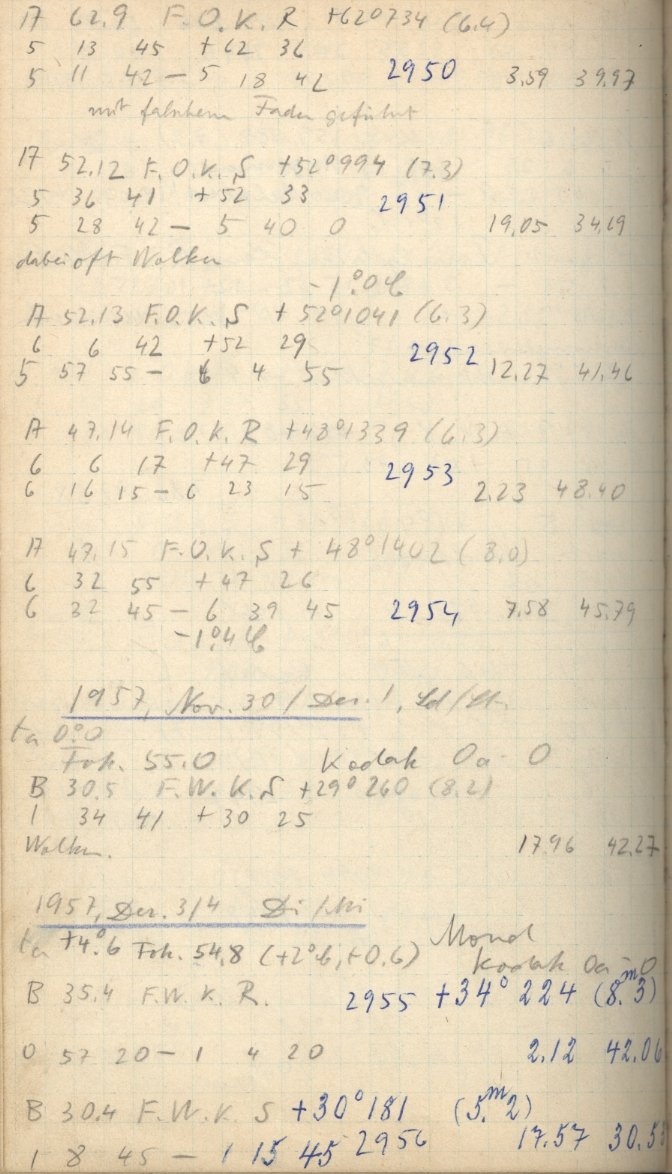 A 62.9 F.O.K.R +62°734 (6.4)
5 13 45 +62 36
5 11 42 – 5 18 42 2950 3,59 39.97
mit falschem Faden geführt
A 52.12 F.O.K.S +52°994 (7.3)
5 36 41 +52 33 2951
5 28 42 – 5 40 0 19,05 34,19
dabei oft Wolken
-1°0 C
A 52.13 F.O.K.S +52°1041 (6.3)
6 6 42 +52 29 2952
5 57 55 – 6 4 55 12.27 41.46
A 47.14 F.O.K.R +48°1339 (6.3)
6 6 17 +47 29 2953
6 16 15 – 6 23 15 2.23 48.40
A 47.15 F.O.K.S + 48°1402 (8.0)
6 32 55 +47 26
6 32 45 – 6 39 45 2954 7.58 45.79
-1°4 C
1957, Nov. 30 / Dez. 1,
ta 0°0
Fok. 55.0 Kodak Oa-O
B 30.5 F.W.K.S +29°260 (8.2)
1 34 41 +30 25
Wolken. 17.96 42.27
1957, Dez. 3/4 Di/Mi
ta +4°6 Fok. 54,8 (+2°6, +0.6) Mond
Kodak Oa-O
B 35.4 F.W.K.R. 2955 +34°224 (8.m3)
0 57 20 – 1 4 20 2.12 42.06
B 30.4 F.W.K.S +30°181 (5.m2)
1 8 45 – 1 15 45 2956 17.57